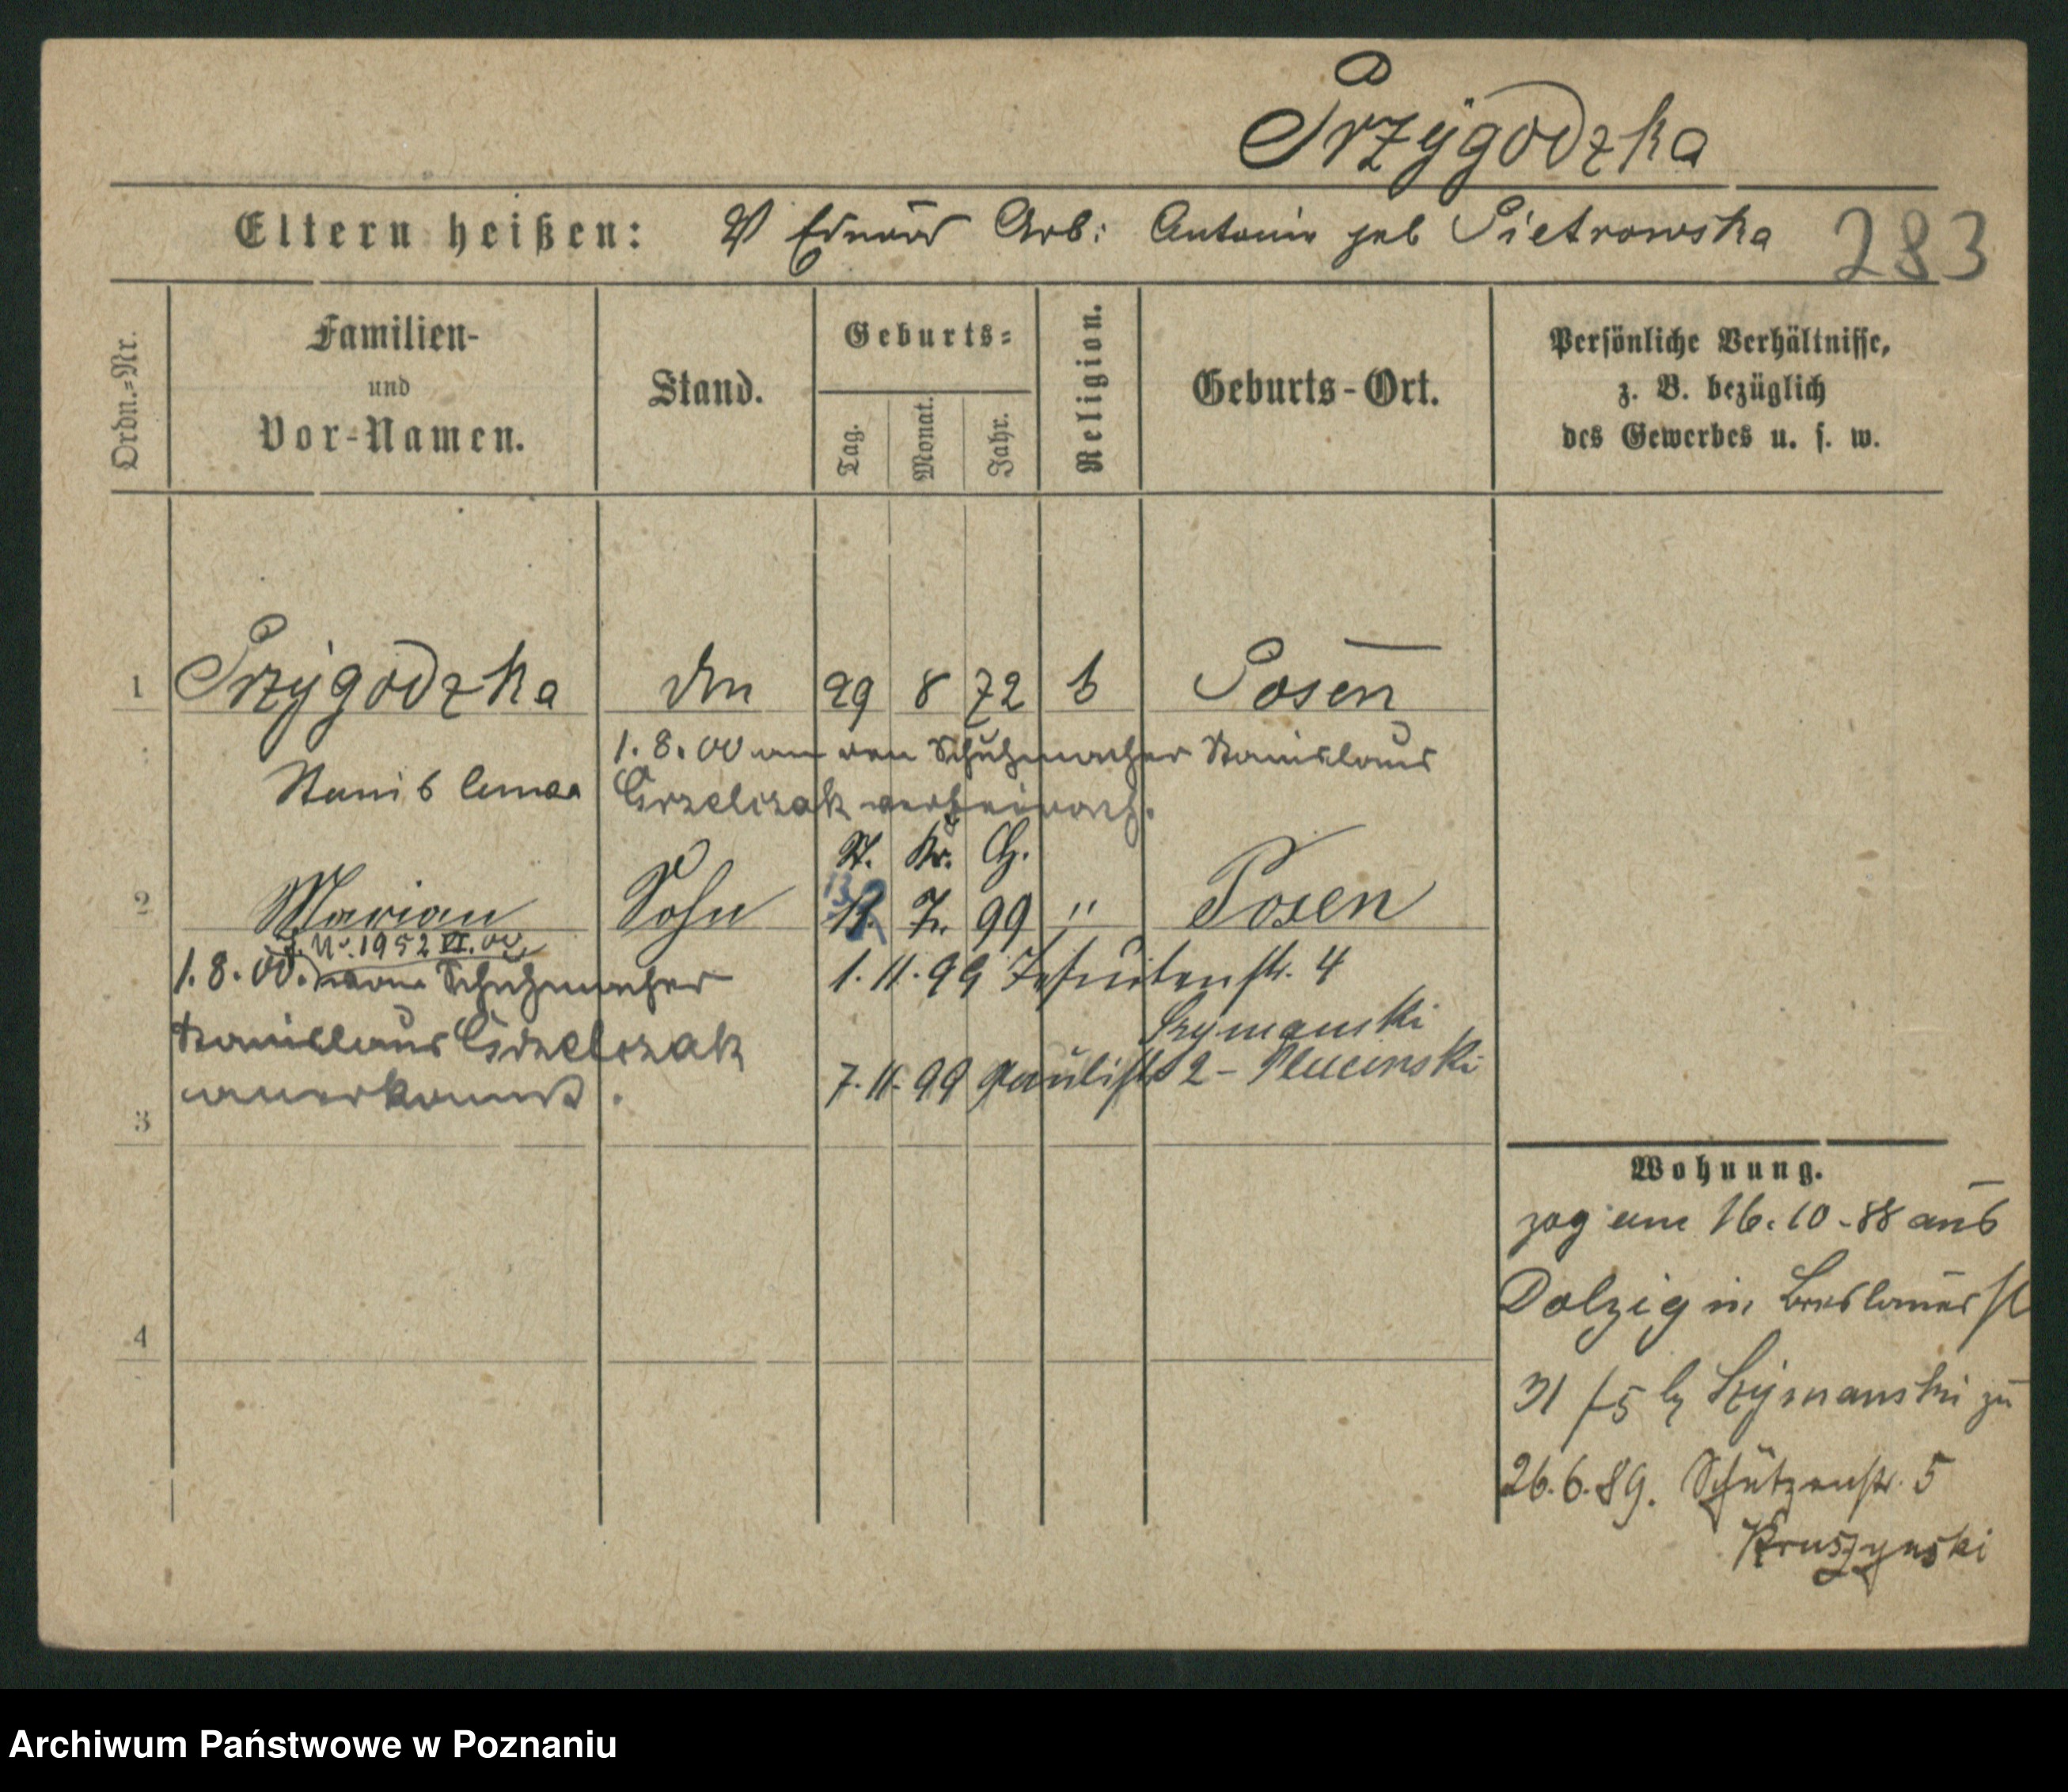 Przygodzka
Eltern heißen: V Eduard Arb: Antonie geb Pietrowska 283
Ordn.-Nr.
Familien- und Vor-Namen.
Stand.
Geburts-
Tag. Monat. Jahr.
Religion.
Geburts-Ort.
Persönliche Verhältnisse,
z. B. bezüglich
des Gewerbes u. s. w.
1 Przygodzka 29 8 72 Posen
1. 8. 00 an den Schuhmacher Stanislaus
Stanislawa Grzelczak verheirath.
St. Kr. H.
2 Marian Sohn 7. 99 " Posen
Nr. 1952 VI. 00
1. 8. 00. vom Schuhmacher
1. 11. 99 Jesuitenstr. 4
Szymanski
Stanislaus Grzelczak
7. 11. 99 Paulistr 2 - Plucinski
anerkannt.
3
Wohnung.
zog am 16. 10 - 88 aus
Dolzig in Breslauer st
31 b Szymanski zu
26. 6. 89. Schützenstr. 5
Kruszynski
4
Archiwum Państwowe w Poznaniu